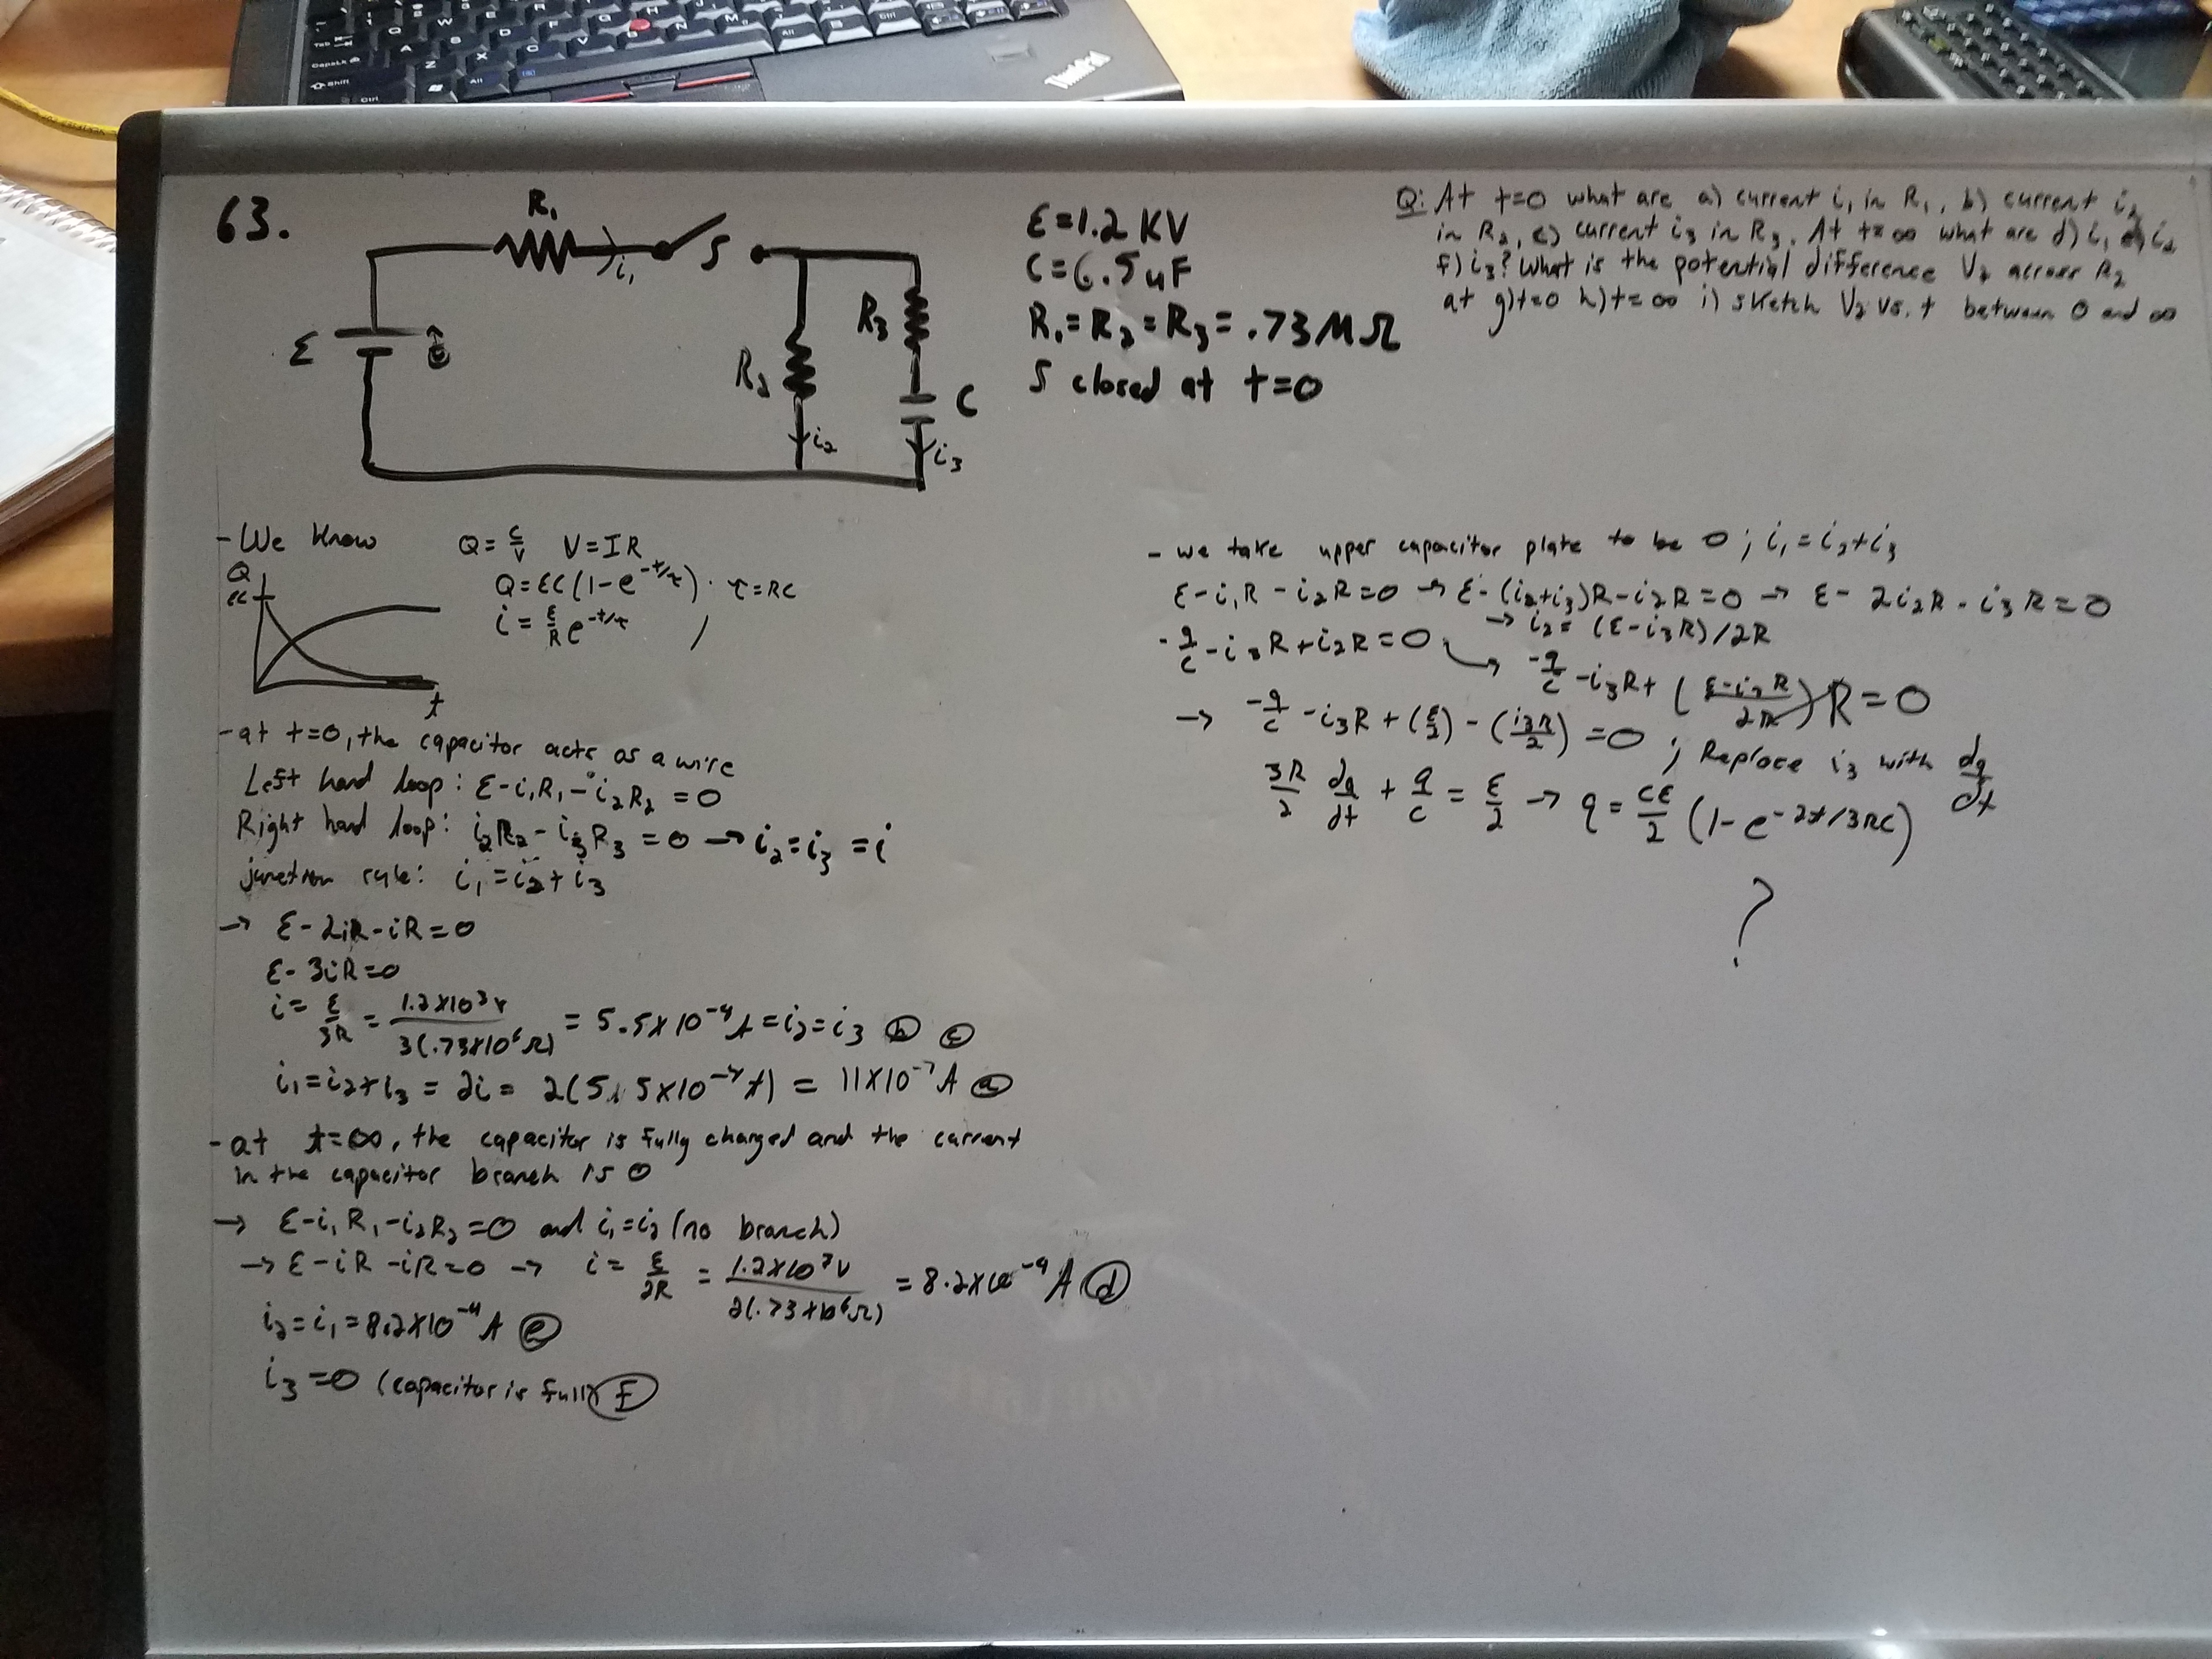 ThinkPad
63.
R₁
i₁
S
ε
R₂
i₂
R₃
C
i₃
ε=1.2 KV
C=6.5uF
R₁=R₂=R₃=.73MΩ
S closed at t=0
Q: At t=0 what are a) current i₁ in R₁, b) current i₂
in R₂, c) current i₃ in R₃. At t=∞ what are d) i₁ e) i₂
f) i₃? What is the potential difference V₂ across R₂
at g) t=0 h) t=∞ i) sketch V₂ vs. t between 0 and ∞
- We know Q=C/V V=IR
Q=εC(1-e^(-t/τ)) · τ=RC
i=ε/R e^(-t/τ)
Q
εc
t
- at t=0, the capacitor acts as a wire
Left hand loop: ε-i₁R₁-i₂R₂=0
Right hand loop: i₂R₂-i₃R₃=0 → i₂=i₃=i
junction rule: i₁=i₂+i₃
→ ε-2iR-iR=0
ε-3iR=0
i=ε/3R = 1.2x10³V/3(.73x10⁶Ω) = 5.5x10⁻⁴A=i₂=i₃ (b) (c)
i₁=i₂+i₃=2i= = 11x10⁻⁴A (a)
- at t=∞, the capacitor is fully charged and the current
in the capacitor branch is 0
→ ε-i₁R₁-i₂R₂=0 and i₁=i₂ (no branch)
→ε-iR-iR=0 → i=ε/2R = 1.2x10³V/2(.73x10⁶Ω) = 8.2x10⁻⁴A (d)
i₂=i₁=8.2x10⁻⁴A (e)
i₃=0 (capacitor is full) (f)
- we take upper capacitor plate to be 0; i₁=i₂+i₃
ε-i₁R-i₂R=0 → ε-(i₂+i₃)R-i₂R=0 → ε-2i₂R-i₃R=0
→ i₂=(ε-i₃R)/2R
-q/c-i₃R+i₂R=0 → -q/c-i₃R+((ε-i₃R)/2R)R=0
→ -q/c-i₃R+(ε/2)-(i₃R/2)=0; Replace i₃ with dq/dt
3R/2 dq/dt + q/c = ε/2 → q=cε/2 (1-e^(-2t/3RC))
?